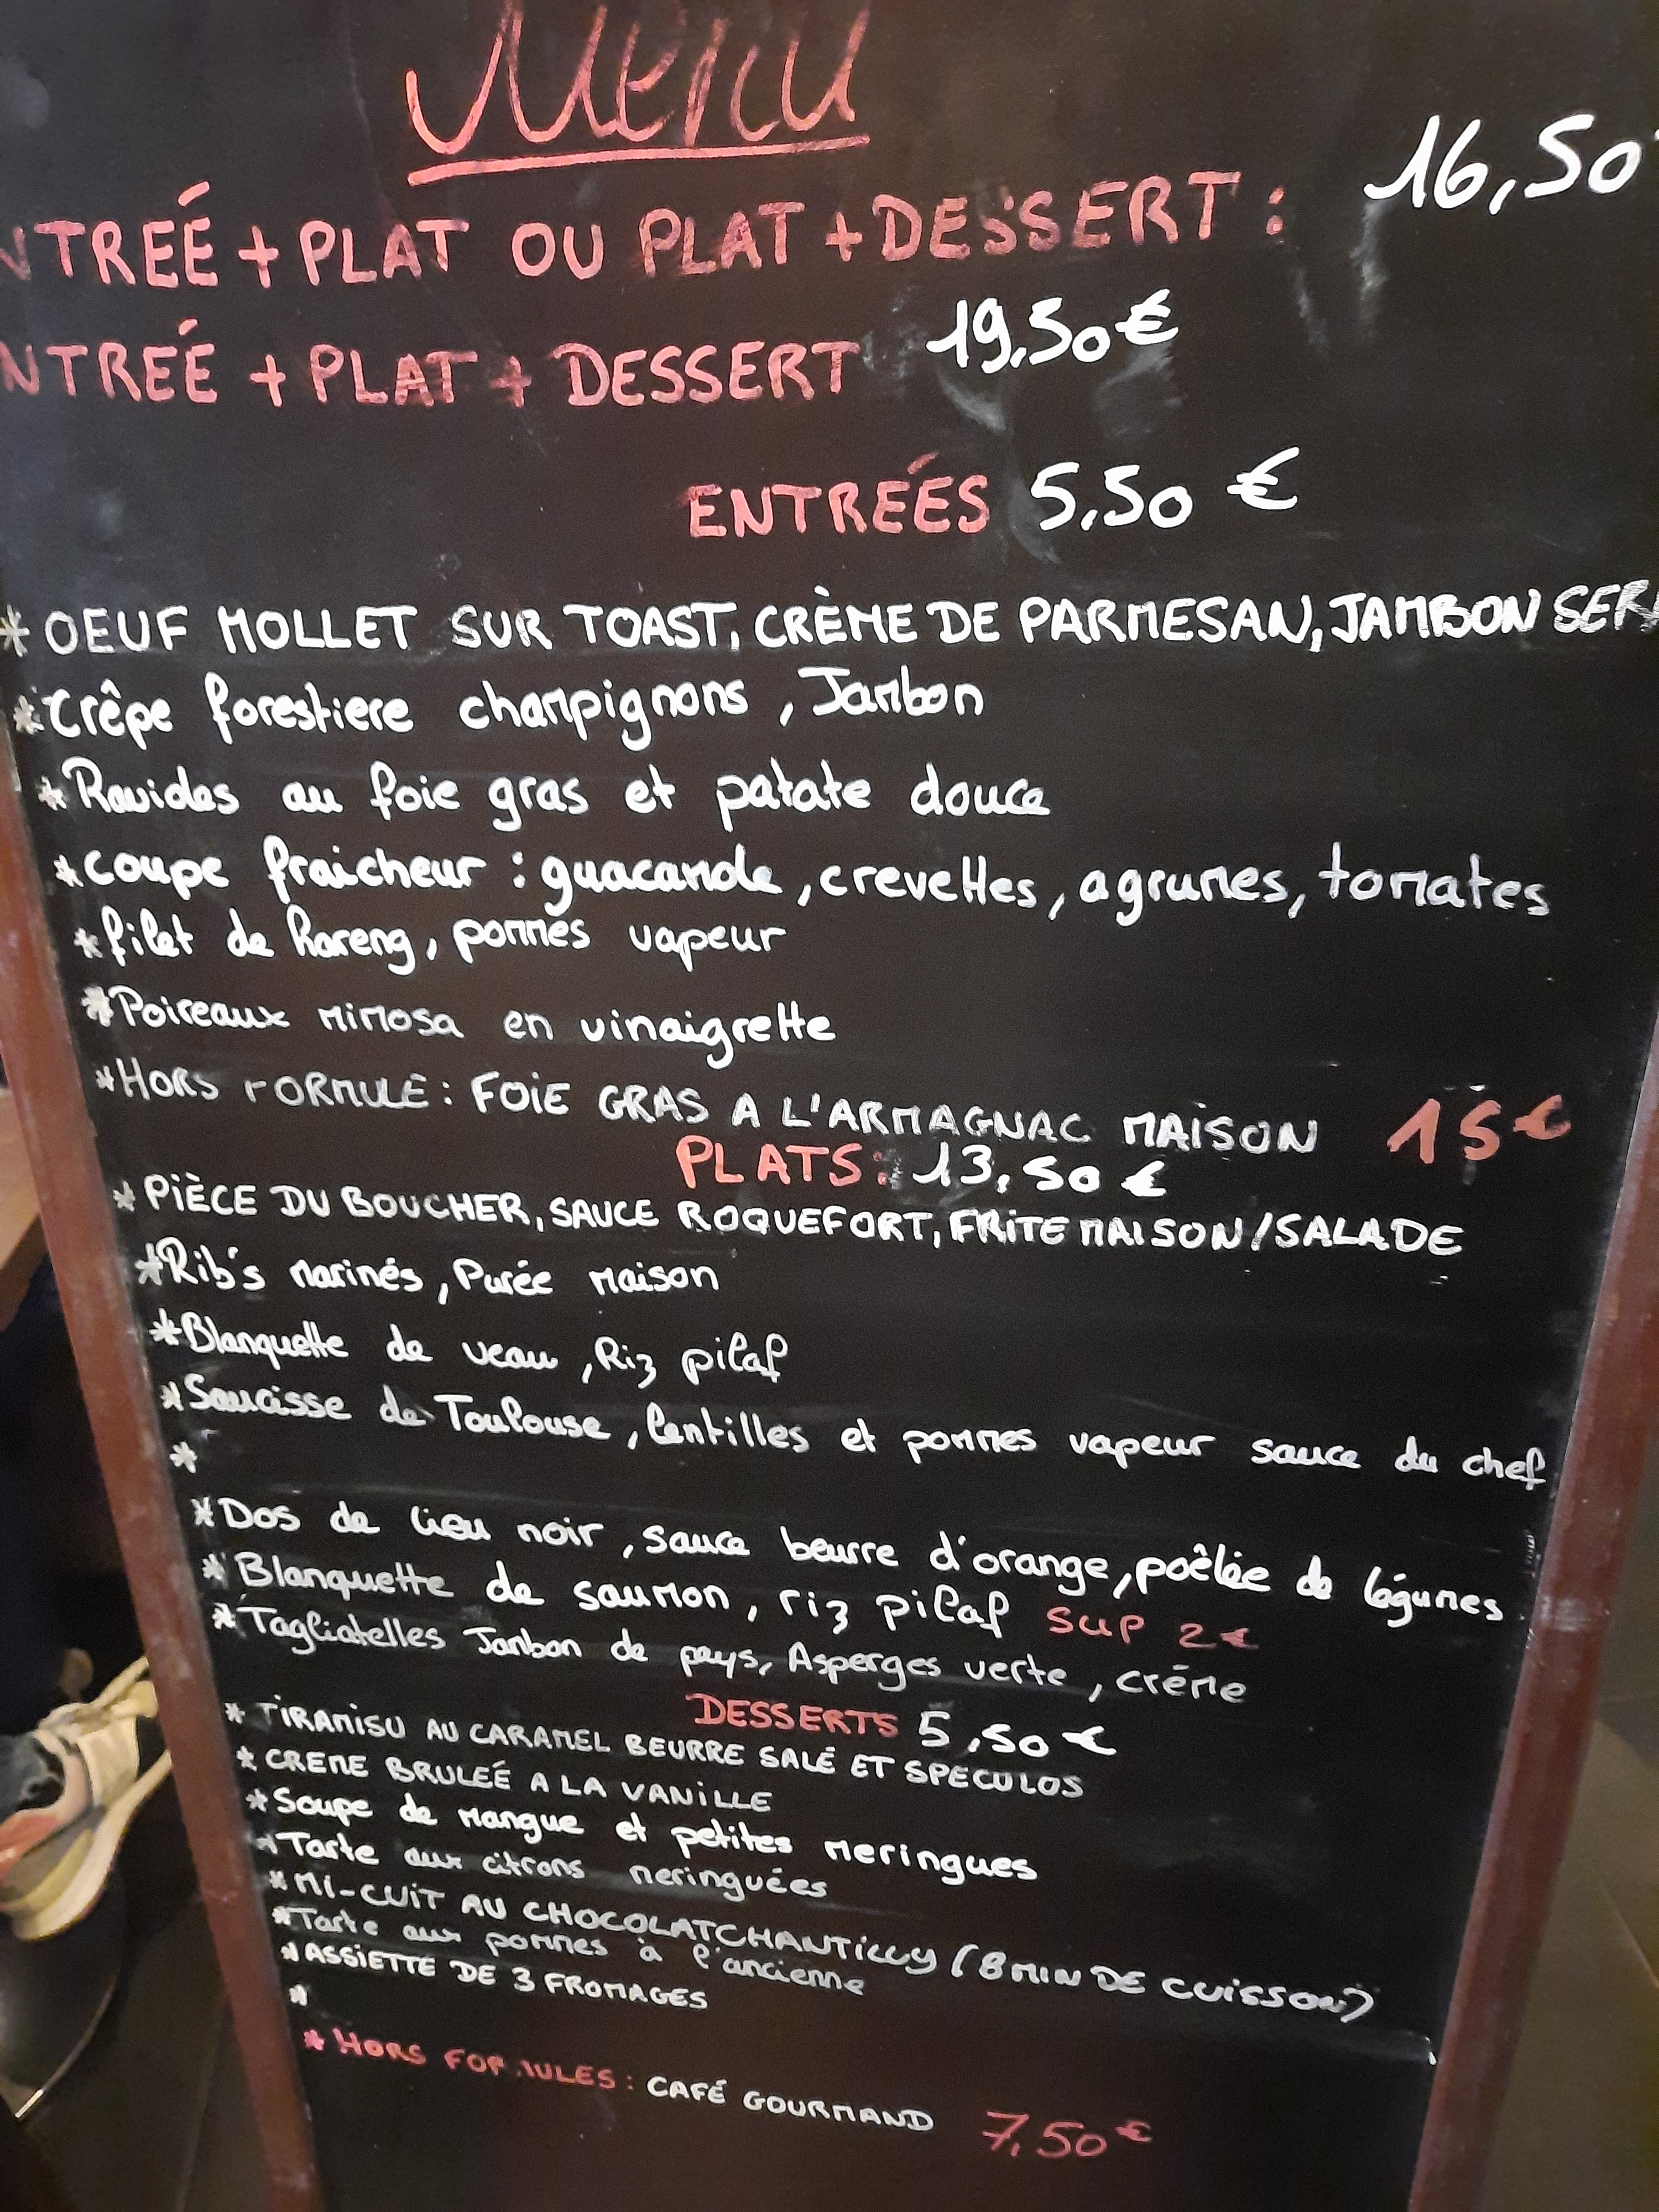 Menu
NTREÉ + PLAT OU PLAT + DESSERT : 16,50
NTREÉ + PLAT + DESSERT 19,50€
ENTREÉS 5,50 €
* OEUF MOLLET SUR TOAST, CRÈME DE PARMESAN, JAMBON SER
* Crêpe forestiere champignons , Jambon
* Ravioles au foie gras et patate douce
* coupe fraicheur : guacamole, crevettes, agrumes, tomates
* filet de hareng, pommes vapeur
* Poireaux mimosa en vinaigrette
* HORS FORMULE : FOIE GRAS A L'ARMAGNAC MAISON 15€
PLATS : 13,50 €
* PIÈCE DU BOUCHER, SAUCE ROQUEFORT, FRITE MAISON/SALADE
* Rib's marinés, Purée maison
* Blanquette de veau , Riz pilaf
* Saucisse de Toulouse, lentilles et pommes vapeur sauce du chef
*
* Dos de lieu noir, sauce beurre d'orange, poêlée de légumes
* Blanquette de saumon, riz pilaf sup 2€
* Tagliatelles Jambon de pays, Asperges verte, crême
DESSERTS 5,50 €
* TIRAMISU AU CARAMEL BEURRE SALÉ ET SPECULOS
* CREME BRULEÉ A LA VANILLE
* Soupe de mangue et petites meringues
* Tarte aux citrons meringuées
* MI-CUIT AU CHOCOLATCHANTILLY (8 MIN DE CUISSON)
* Tarte aux pommes à l'ancienne
* ASSIETTE DE 3 FROMAGES
*
* HORS FORMULES : CAFÉ GOURMAND 7,50€